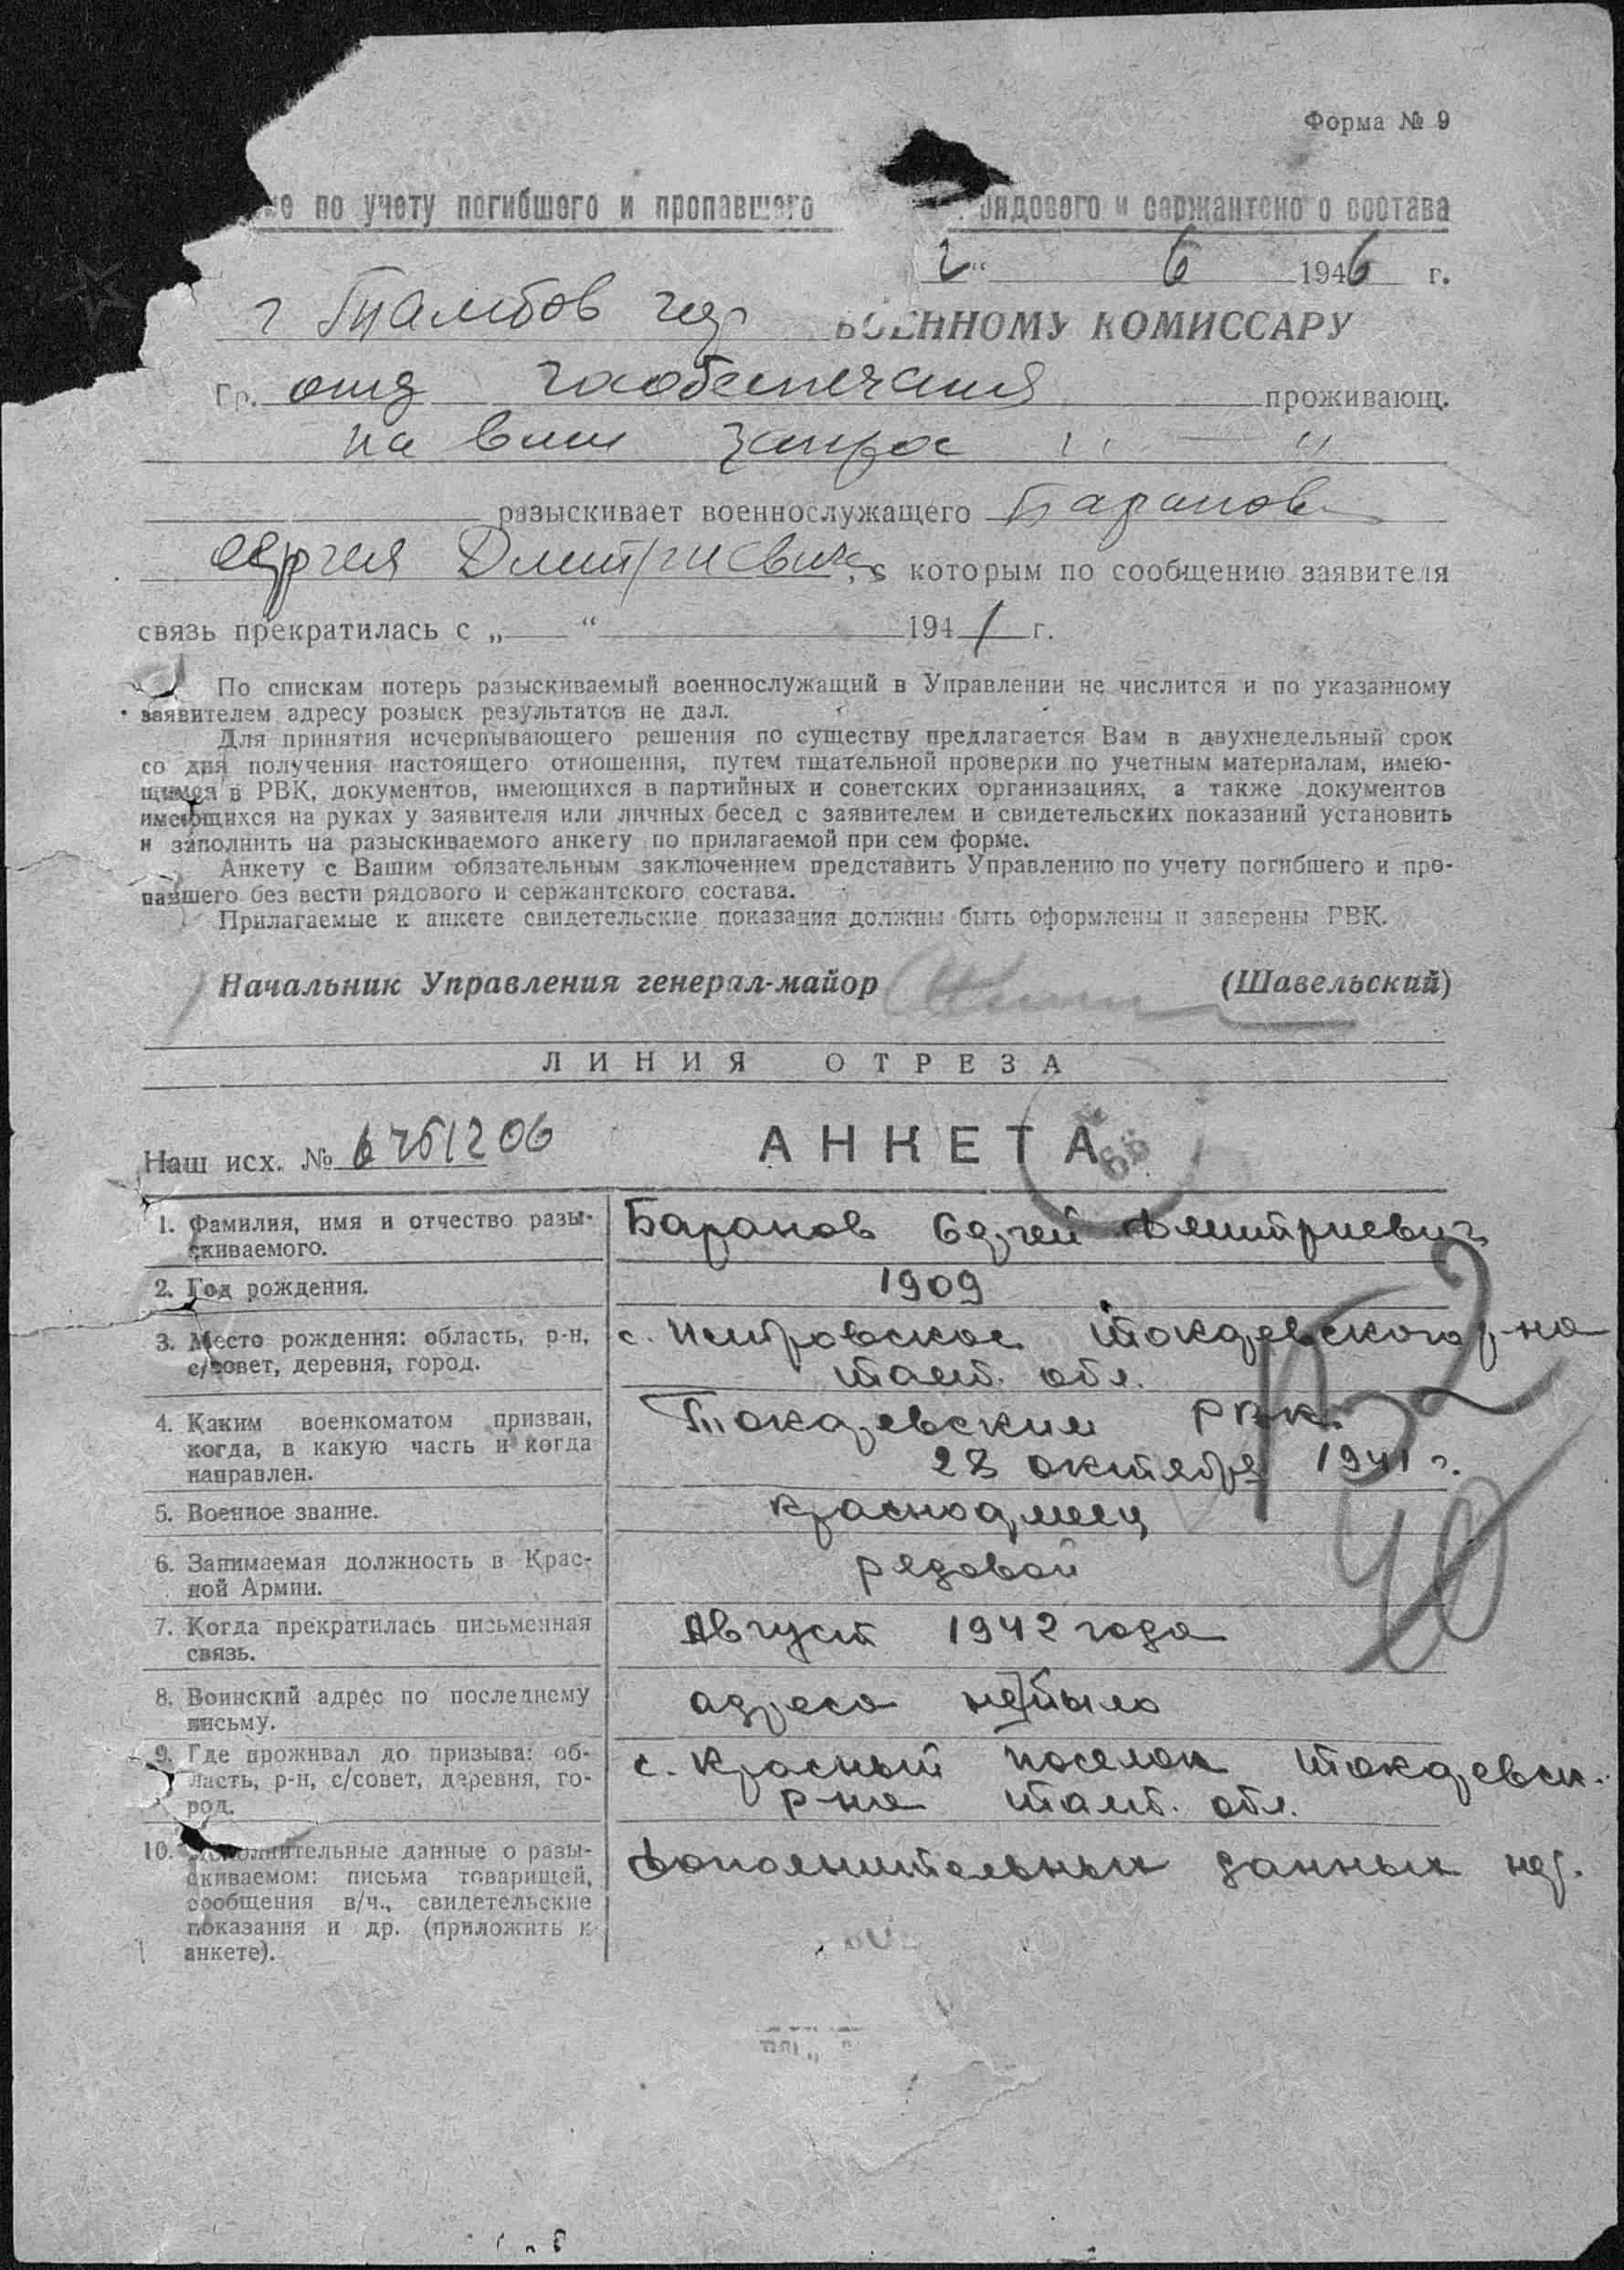 Форма № 9
по учету погибшего и пропавшего рядового и сержантско о состава
2 “ 6 1946 г.
г Тамбов ВОЕННОМУ КОМИССАРУ
Гр. отд гособеспечания проживающ.
на ваш запрос
разыскивает военнослужащего Баранов
Сергея Дмитриевича, с которым по сообщению заявителя
связь прекратилась с „ “ 1941 г.
По спискам потерь разыскиваемый военнослужащий в Управлении не числится и по указанному
заявителем адресу розыск результатов не дал.
Для принятия исчерпывающего решения по существу предлагается Вам в двухнедельный срок
со дня получения настоящего отношения, путем тщательной проверки по учетным материалам, имею-
щимся в РВК, документов, имеющихся в партийных и советских организациях, а также документов
имеющихся на руках у заявителя или личных бесед с заявителем и свидетельских показаний установить
и заполнить на разыскиваемого анкету по прилагаемой при сем форме.
Анкету с Вашим обязательным заключением представить Управлению по учету погибшего и про-
павшего без вести рядового и сержантского состава.
Прилагаемые к анкете свидетельские показания должны быть оформлены и заверены РВК.
Начальник Управления генерал-майор (Шавельский)
ЛИНИЯ ОТРЕЗА
Наш исх. № 6751206 АНКЕТА
1. Фамилия, имя и отчество разы-
скиваемого.
Баранов Сергей Дмитриевич
2. Год рождения.
1909
3. Место рождения: область, р-н,
с/совет, деревня, город.
с. Петровское Токаревского р-на
Тамб. обл.
4. Каким военкоматом призван,
когда, в какую часть и когда
направлен.
Токаревским РВК.
28 октября 1941 г.
5. Военное звание.
красноармеец
6. Занимаемая должность в Крас-
ной Армии.
рядовой
7. Когда прекратилась письменная
связь.
Август 1942 года
8. Воинский адрес по последнему
письму.
адреса не было
9. Где проживал до призыва: об-
ласть, р-н, с/совет, деревня, го-
род.
с. Красный поселок Токаревск.
р-на Тамб. обл.
10. Дополнительные данные о разы-
скиваемом: письма товарищей,
сообщения в/ч., свидетельские
показания и др. (приложить к
анкете).
Дополнительных данных нет.